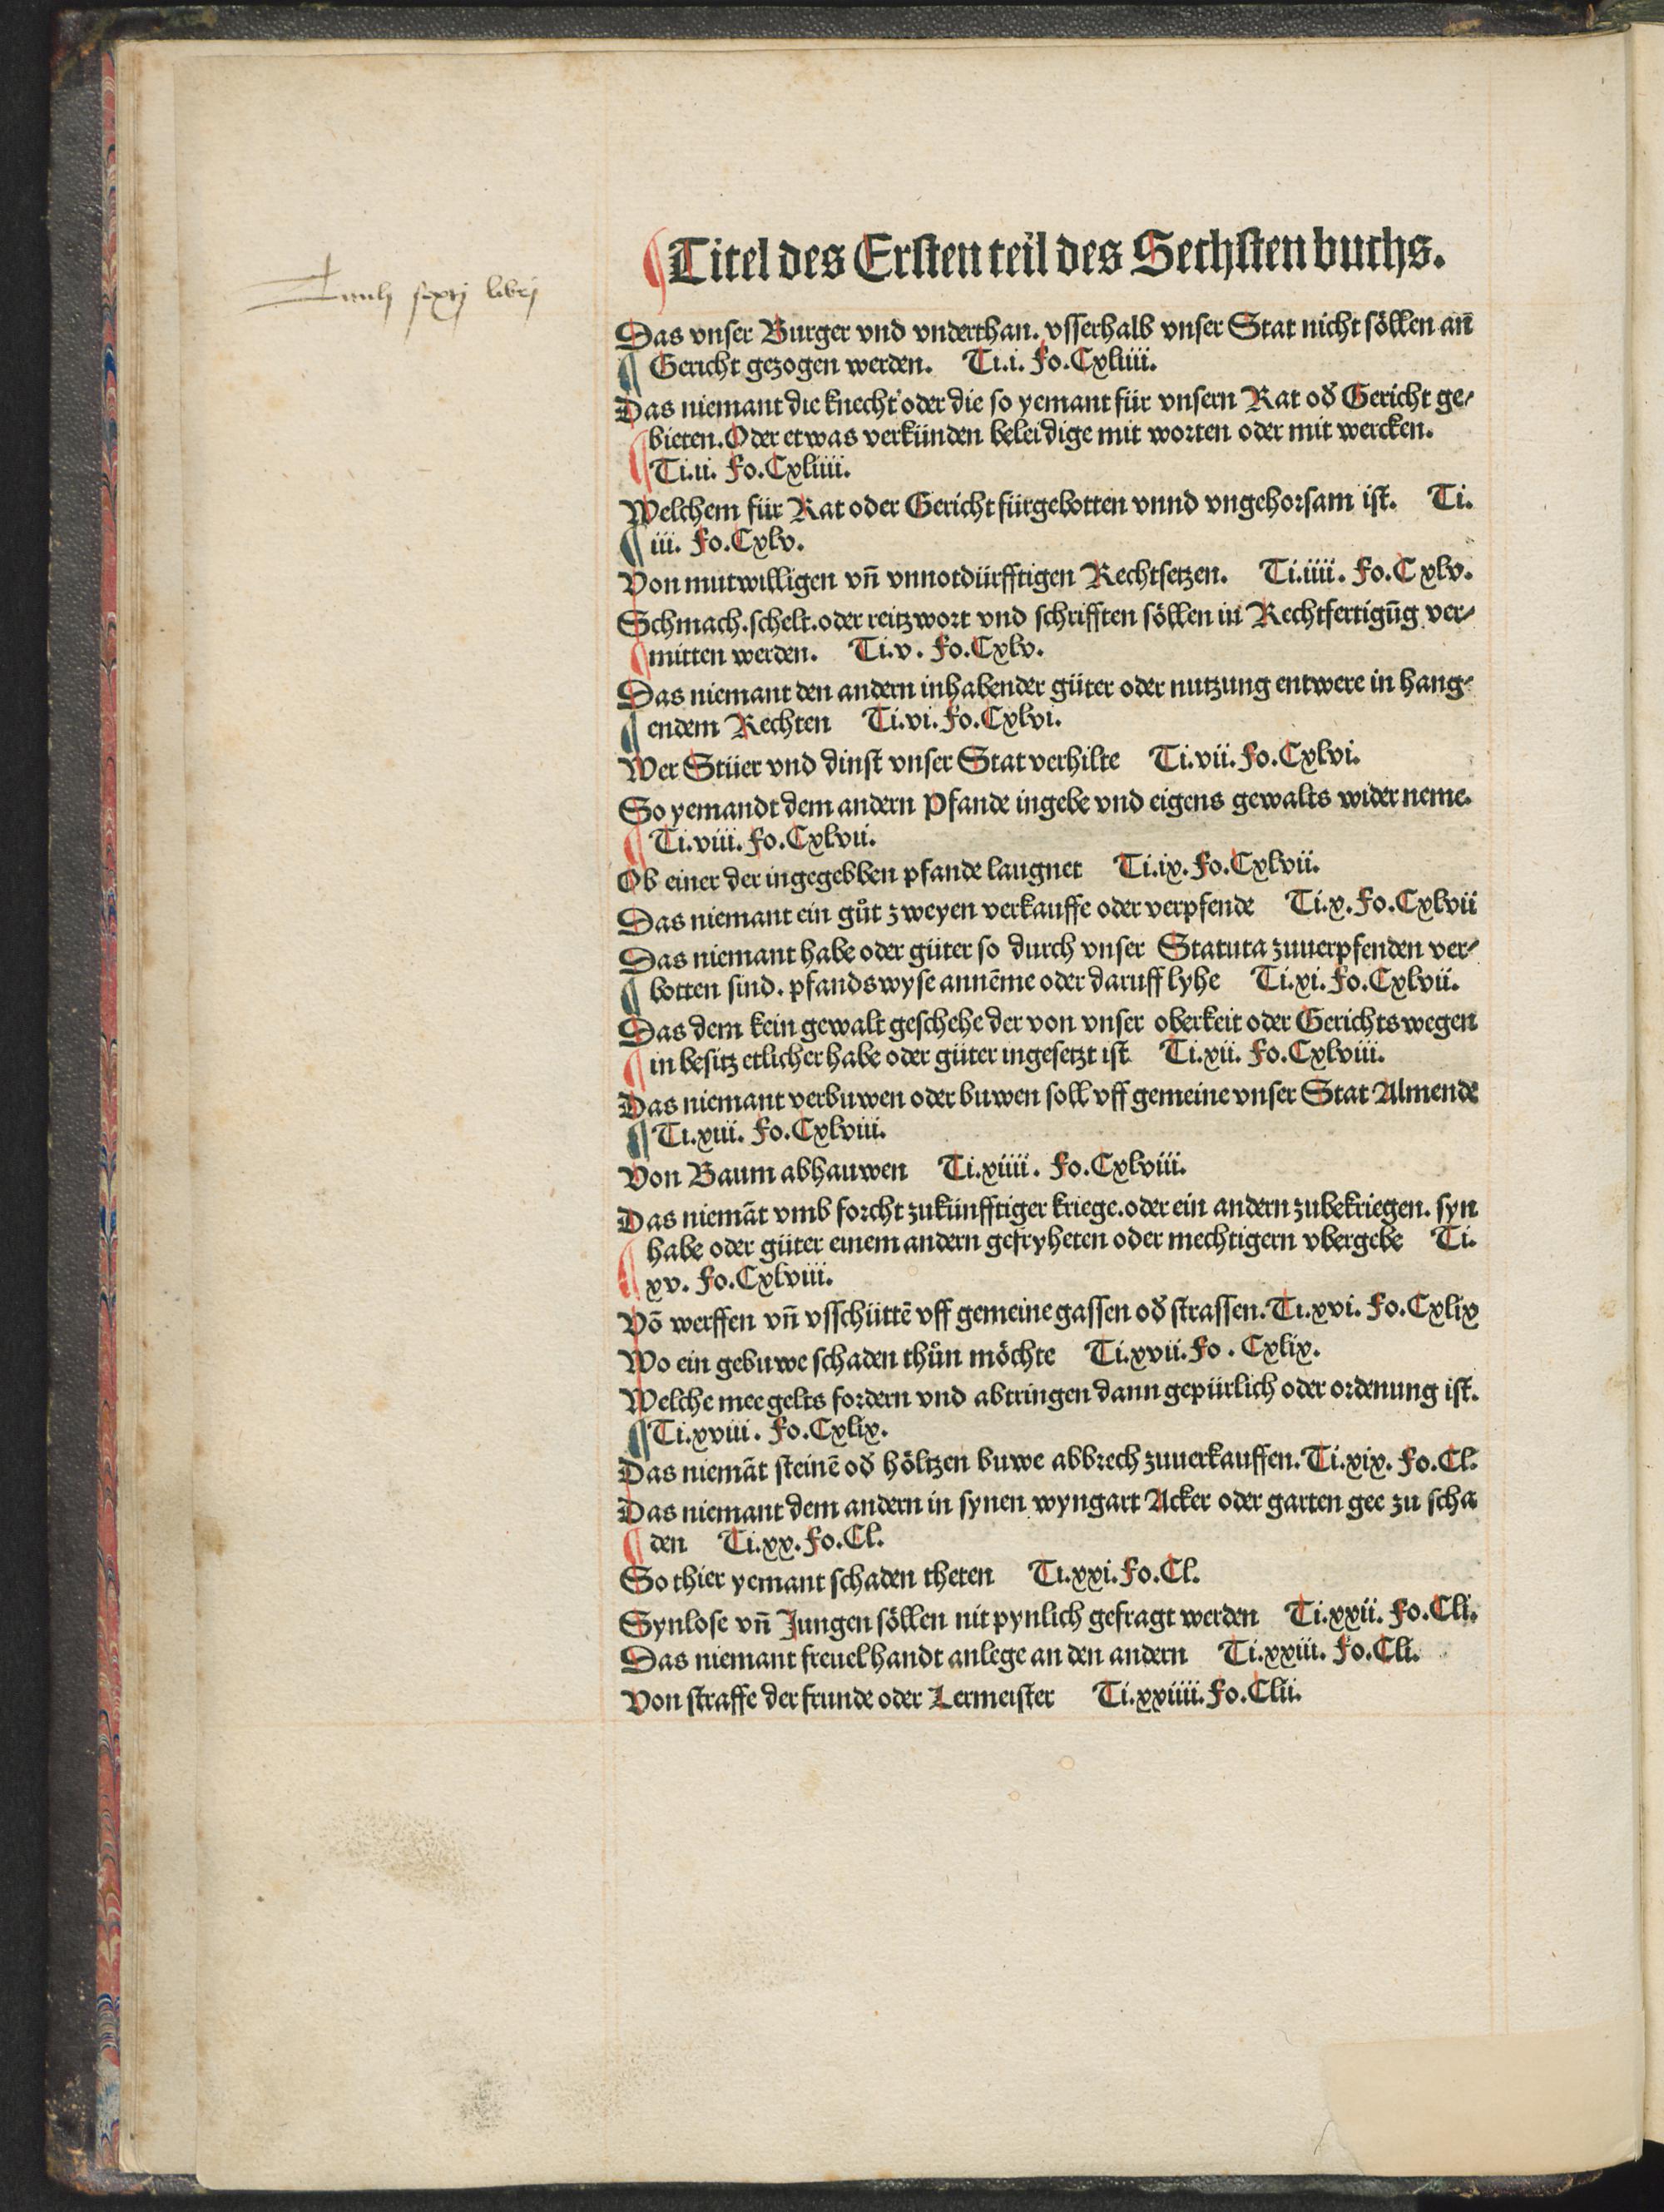 Tituli sexti libri
¶Titel des Ersten teil des Sechsten buchs.
Das vnser Burger vnd vnderthan. vsserhalb vnser Stat nicht söllen an̄
¶ Gericht gezogen werden. Ti.i. Fo.Cxliiii.
Das niemant die knecht oder die so yemant für vnsern Rat od̛ Gericht ge⸗
¶bieten. Oder etwas verkünden beleidige mit worten oder mit wercken.
Ti.ii. Fo.Cxliiii.
Welchem für Rat oder Gericht fürgebotten vnnd vngehorsam ist. Ti.
¶ iii. Fo.Cxlv.
Von mutwilligen vn̄ vnnotdürfftigen Rechtsetzen. Ti.iiii. Fo.Cxlv.
Schmach. schelt. oder reitzwort vnd schrifften söllen in Rechtfertigūg ver⸗
¶mitten werden. Ti.v. Fo.Cxlv.
Das niemant den andern inhabender güter oder nutzung entwere in hang⸗
¶ endem Rechten Ti.vi. Fo.Cxlvi.
Wer Stüer vnd dinst vnser Stat verhilte Ti.vii. Fo.Cxlvi.
So yemandt dem andern Pfande ingebe vnd eigens gewalts wider neme.
¶ Ti.viii. Fo.Cxlvii.
Ob einer der ingegebben pfande laugnet Ti.ix. Fo.Cxlvii.
Das niemant ein gůt zweyen verkauffe oder verpfende Ti.x. Fo.Cxlvii
Das niemant habe oder güter so durch vnser Statuta zuuerpfenden ver⸗
¶ botten sind. pfandswyse annēme oder daruff lyhe Ti.xi. Fo.Cxlvii.
Das dem kein gewalt geschehe der von vnser oberkeit oder Gerichts wegen
¶ in besitz etlicher habe oder güter ingesetzt ist Ti.xii. Fo.Cxlviii.
Das niemant verbuwen oder buwen soll vff gemeine vnser Stat Almende
¶ Ti.xiii. Fo.Cxlviii.
Von Baum abhauwen Ti.xiiii. Fo.Cxlviii.
Das niemāt vmb forcht zukünfftiger kriege. oder ein andern zubekriegen. syn
¶ habe oder güter einem andern gefryheten oder mechtigern vbergebe Ti.
xv. Fo.Cxlviii.
Vō werffen vn̄ vsschüttē vff gemeine gassen od̛ strassen. Ti.xvi. Fo.Cxlix
Wo ein gebuwe schaden thůn möchte Ti.xvii. Fo. Cxlix.
Welche mee gelts fordern vnd abtringen dann gepürlich oder ordenung ist.
¶Ti.xviii. Fo.Cxlix.
Das niemāt steinē od̛ höltzen buwe abbrech zuuerkauffen. Ti.xix. Fo.Cl.
Das niemant dem andern in synen wyngart Acker oder garten gee zu scha
¶ den Ti.xx. Fo.Cl.
So thier yemant schaden theten Ti.xxi. Fo.Cl.
Synlose vn̄ Jungen söllen nit pynlich gefragt werden Ti.xxii. Fo.Cli.
Das niemant freuel handt anlege an den andern Ti.xxiii. Fo.Cli.
Von straffe der frunde oder Lermeister Ti.xxiiii. Fo.Clii.